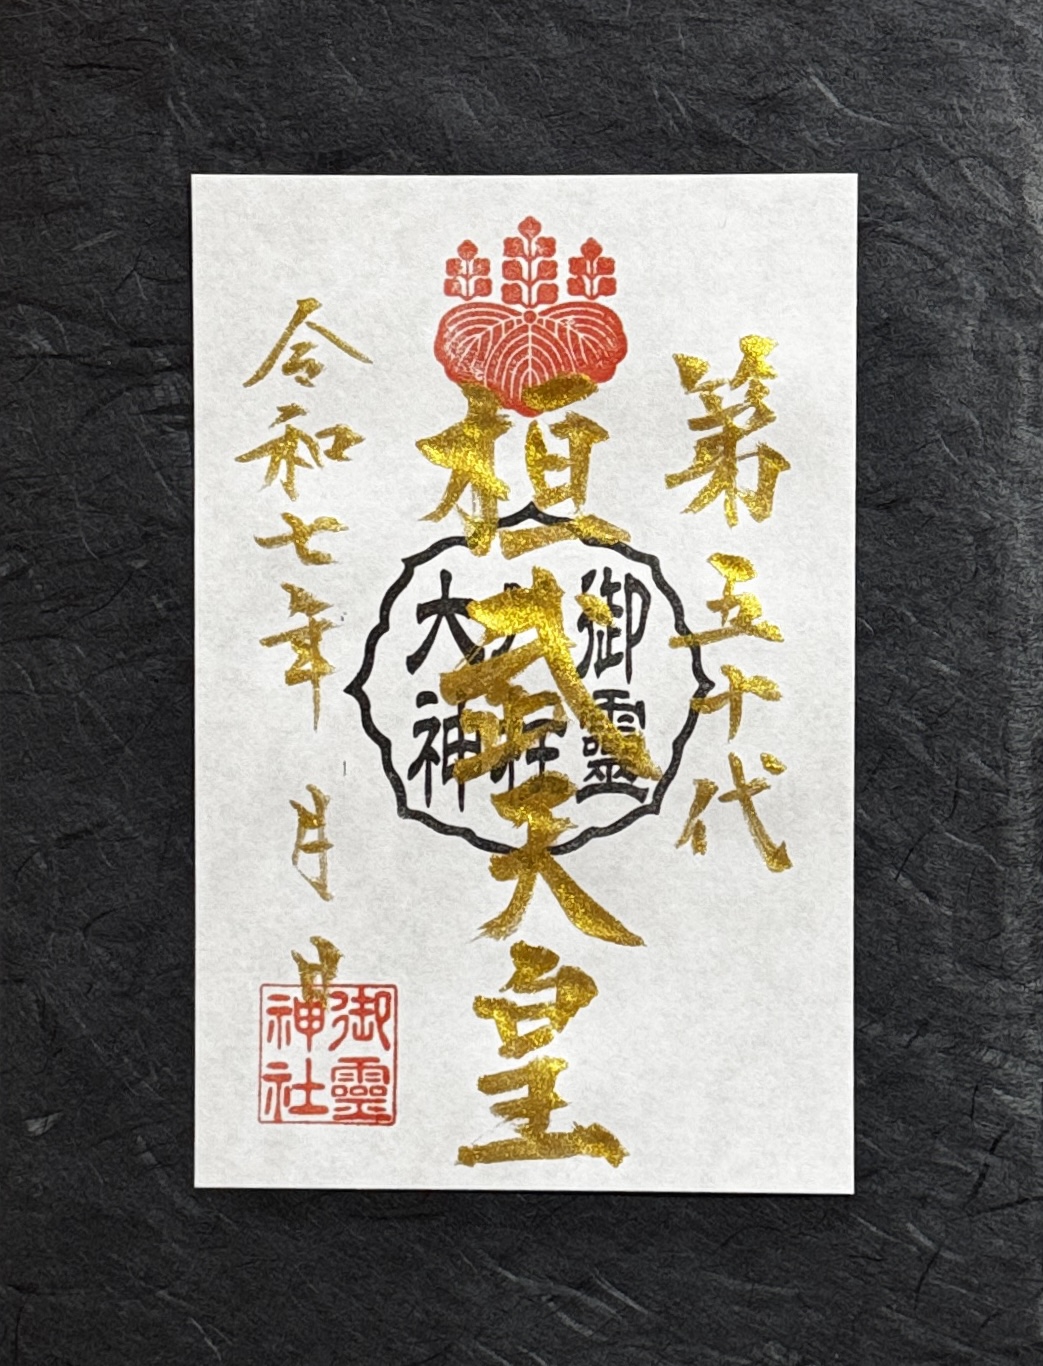 第五十代
桓武天皇
御靈
八所
大神
令和七年 月 日
御靈
神社